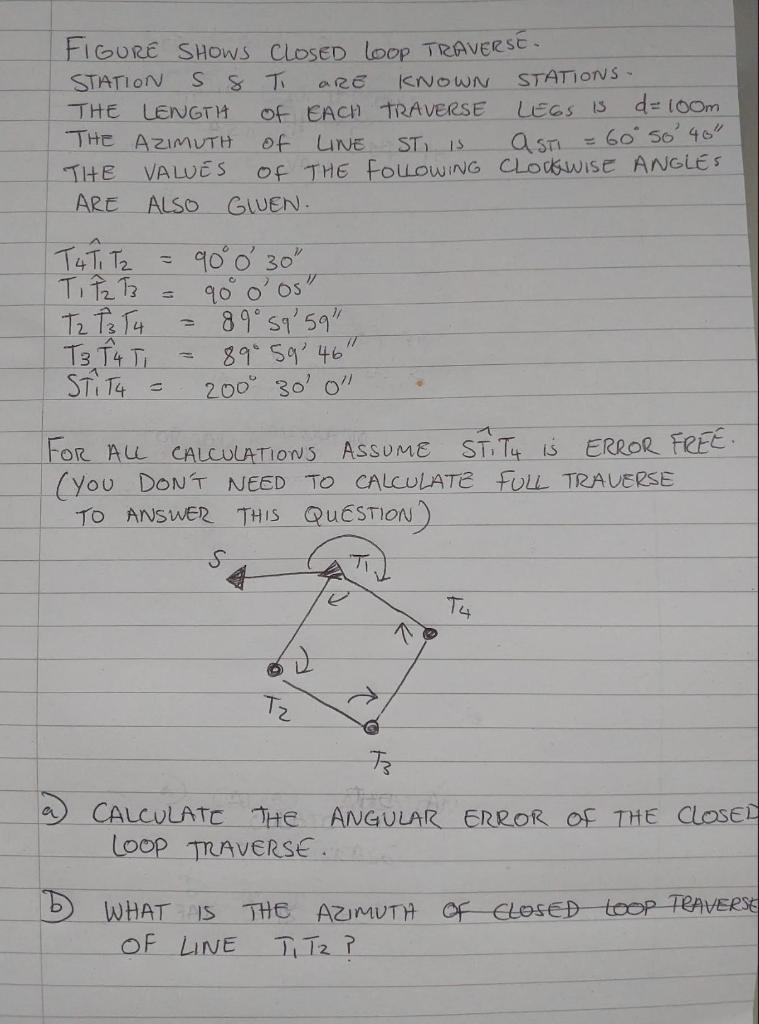 FIGURE SHOWS CLOSED LOOP TRAVERSE.
STATION S & T1 ARE KNOWN STATIONS.
THE LENGTH OF EACH TRAVERSE LEGS IS d=100m
THE AZIMUTH OF LINE ST1 IS aST1 = 60° 50' 40"
THE VALUES OF THE FOLLOWING CLOCKWISE ANGLES
ARE ALSO GIVEN.
T4T̂1T2 = 90° 0' 30"
T1T̂2T3 = 90° 0' 05"
T2T̂3T4 = 89° 59' 59"
T3T̂4T1 = 89° 59' 46"
ST̂1T4 = 200° 30' 0"
FOR ALL CALCULATIONS ASSUME ST̂1T4 IS ERROR FREE.
(YOU DON'T NEED TO CALCULATE FULL TRAVERSE
TO ANSWER THIS QUESTION)
S
T1
T4
T2
T3
a) CALCULATE THE ANGULAR ERROR OF THE CLOSED
LOOP TRAVERSE.
b) WHAT IS THE AZIMUTH OF CLOSED LOOP TRAVERSE
OF LINE T1T2?